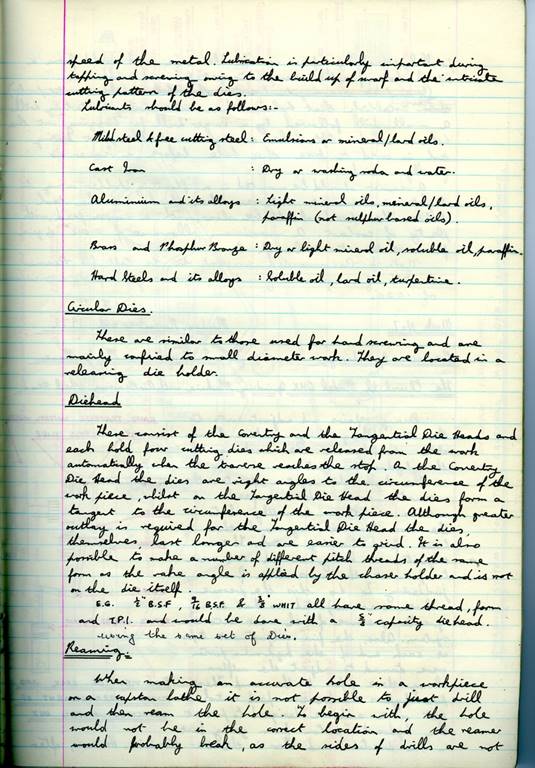 speed of the metal. Lubrication is particularly important during
tapping and screwing owing to the build up of swarf and the intricate
cutting pattern of the dies.
Lubricants should be as follows:-
Mild steel & free cutting steel: Emulsions or mineral/lard oils.
Cast Iron : Dry or washing soda and water.
Aluminium and its alloys : Light mineral oils, mineral/lard oils,
paraffin (not sulphor based oils).
Brass and Phosphor Bronze : Dry or light mineral oil, soluble oil, paraffin.
Hard Steels and its alloys : Soluble oil, lard oil, turpentine.
Circular Dies.
These are similar to those used for hand screwing and are
mainly confined to small diameter work. They are located in a
releasing die holder.
Diehead
These consist of the Coventry and the Tangential Die Heads and
each hold four cutting dies which are released from the work
automatically when the traverse reaches the stop. On the Coventry
Die Head the dies are right angles to the circumference of the
work piece, whilst on the Tangential Die Head the dies form a
tangent to the circumference of the work piece. Although greater
outlay is required for the Tangential Die Head the dies,
themselves, last longer and are easier to grind. It is also
possible to make a number of different pitch threads of the same
form as the rake angle is applied by the chaser holder and is not
on the die itself.
E.G. ½" B.S.F., 9/16 B.S.F. & 3/8" WHIT all have same thread, form
and T.P.I. and would be done with a capacity diehead.
using the same set of Dies.
Reaming.
When making an accurate hole in a workpiece
on a capstan lathe it is not possible to just drill
and then ream the hole. To begin with, the hole
would not be in the correct location and the reamer
would probably break, as the sides of drills are not